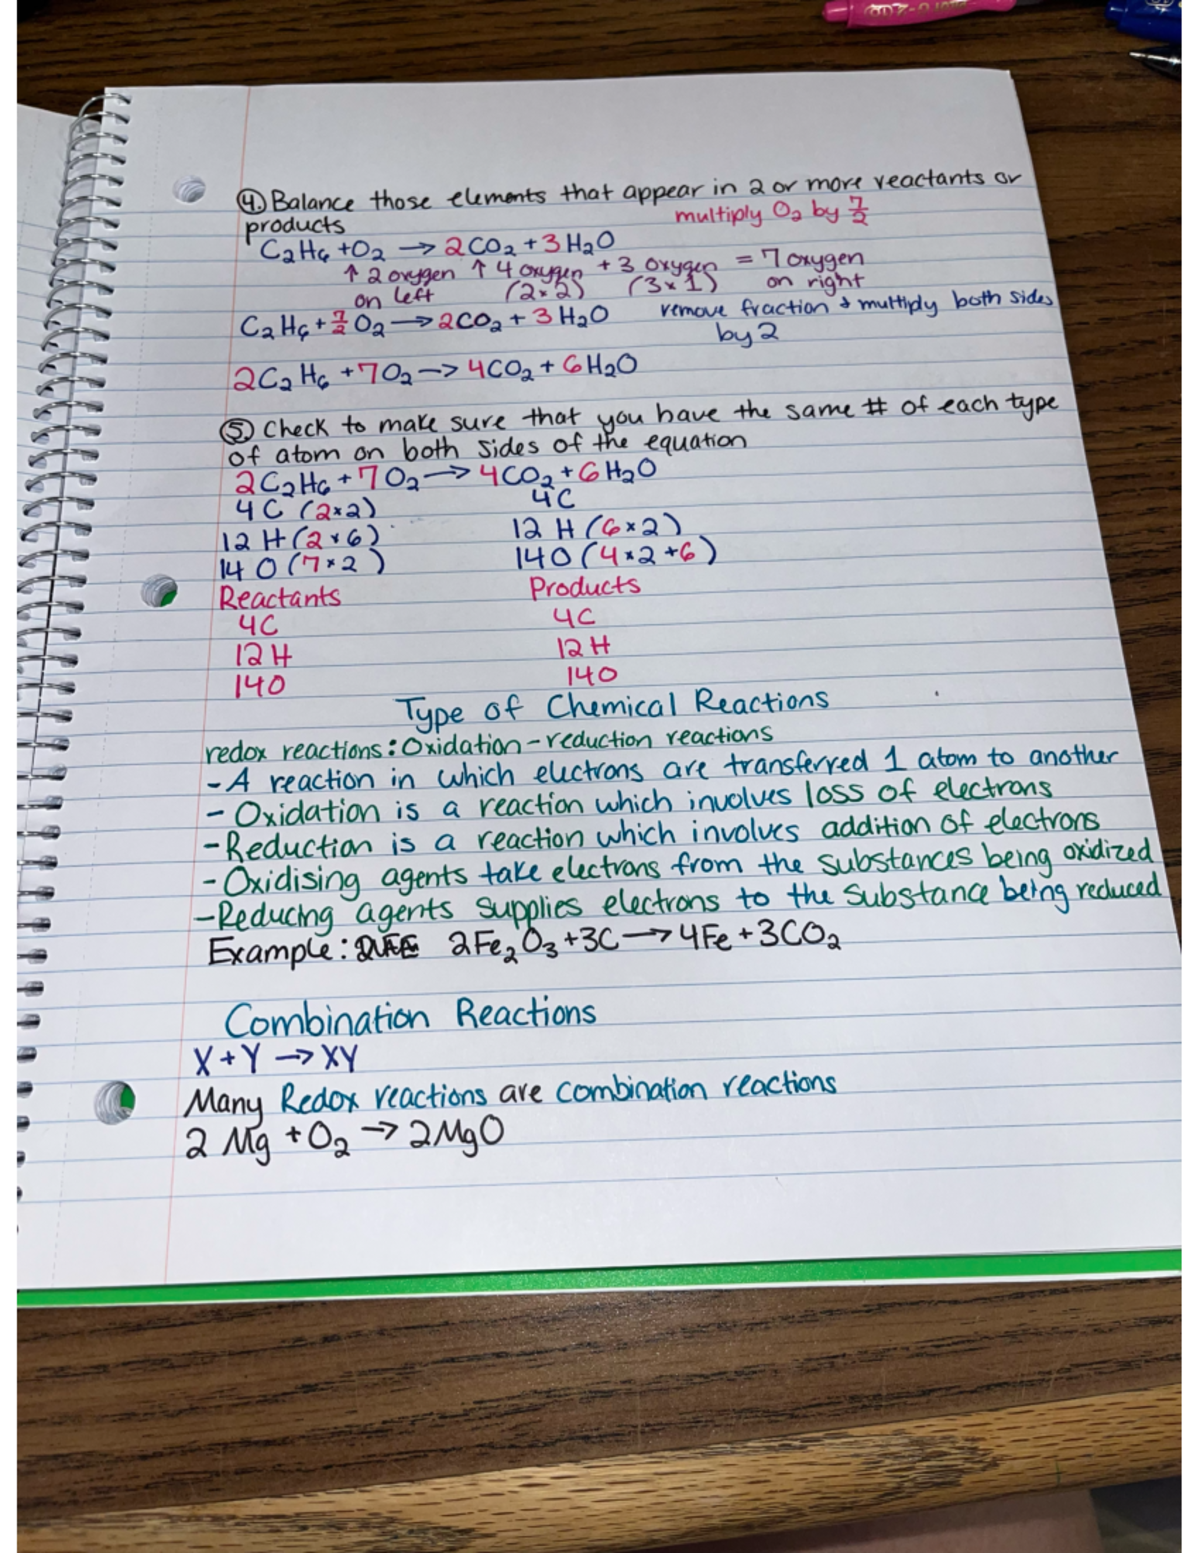 ④ Balance those elements that appear in 2 or more reactants or
products multiply O₂ by 7/2
C₂H₆ + O₂ → 2CO₂ + 3H₂O
↑ 2 oxygen ↑ 4 oxygen + 3 oxygen = 7 oxygen
on left (2×2) (3×1) on right
C₂H₆ + 7/2 O₂ → 2CO₂ + 3H₂O remove fraction & multiply both sides
by 2
2C₂H₆ + 7O₂ → 4CO₂ + 6H₂O
⑤ Check to make sure that you have the same # of each type
of atom on both sides of the equation
2C₂H₆ + 7O₂ → 4CO₂ + 6H₂O
4C (2×2) 4C
12 H (2×6) 12 H (6×2)
14 O (7×2) 14O (4×2+6)
Reactants Products
4C 4C
12H 12H
14O 14O
Type of Chemical Reactions
redox reactions: Oxidation-reduction reactions
- A reaction in which electrons are transferred 1 atom to another
- Oxidation is a reaction which involves loss of electrons
- Reduction is a reaction which involves addition of electrons
- Oxidising agents take electrons from the substances being oxidized
- Reducing agents supplies electrons to the substance being reduced
Example: 2Fe₂O₃ + 3C → 4Fe + 3CO₂
Combination Reactions
X + Y → XY
Many Redox reactions are combination reactions
2 Mg + O₂ → 2MgO